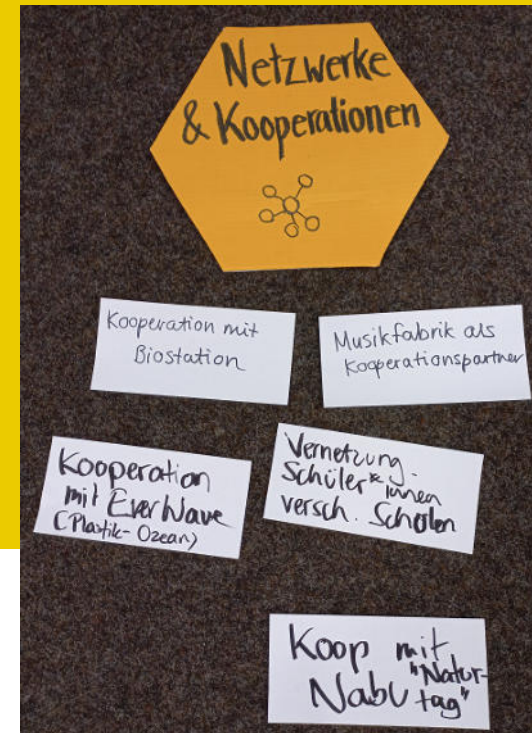 Netzwerke
& Kooperationen
Kooperation mit
Biostation
Musikfabrik als
Kooperationspartner
Kooperation
mit EverWave
(Plastik-Ozean)
Vernetzung
Schüler*innen
versch. Schulen
Koop mit
Nabu "Natur-
tag"